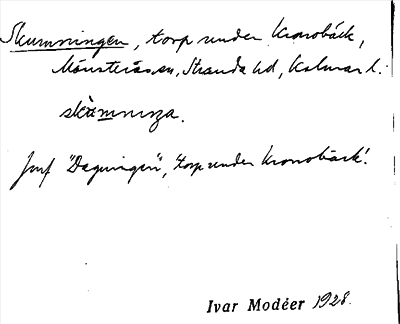 Skumningen, torp under Kronobäck,
Mönsterås sn, Stranda hd, Kalmar l.
skùmniŋa.
Jmf "Dagningen", torp under Kronobäck!
Ivar Modéer 1928.